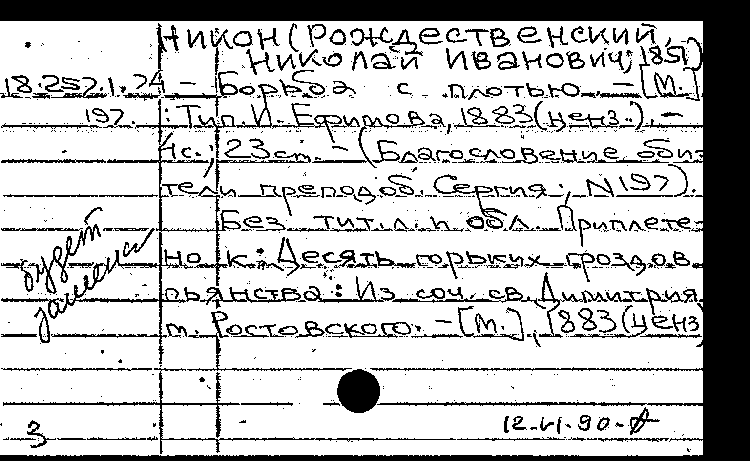 Никон (Рождественский,
Николай Иванович; 1851)
18.257.1.74 - Борьба с плотью. - [М.]
197. : Тип. И. Ефимова, 1883 (ценз.). -
4с.; 23см. - (Благословение оби-
тели преподоб. Сергия; N197).
Без тит. л. и обл. Приплете-
но к: Десять горьких гроздов
пьянства: Из соч. св. Димитрия
м. Ростовского. - [М.], 1883 (ценз
будет
3